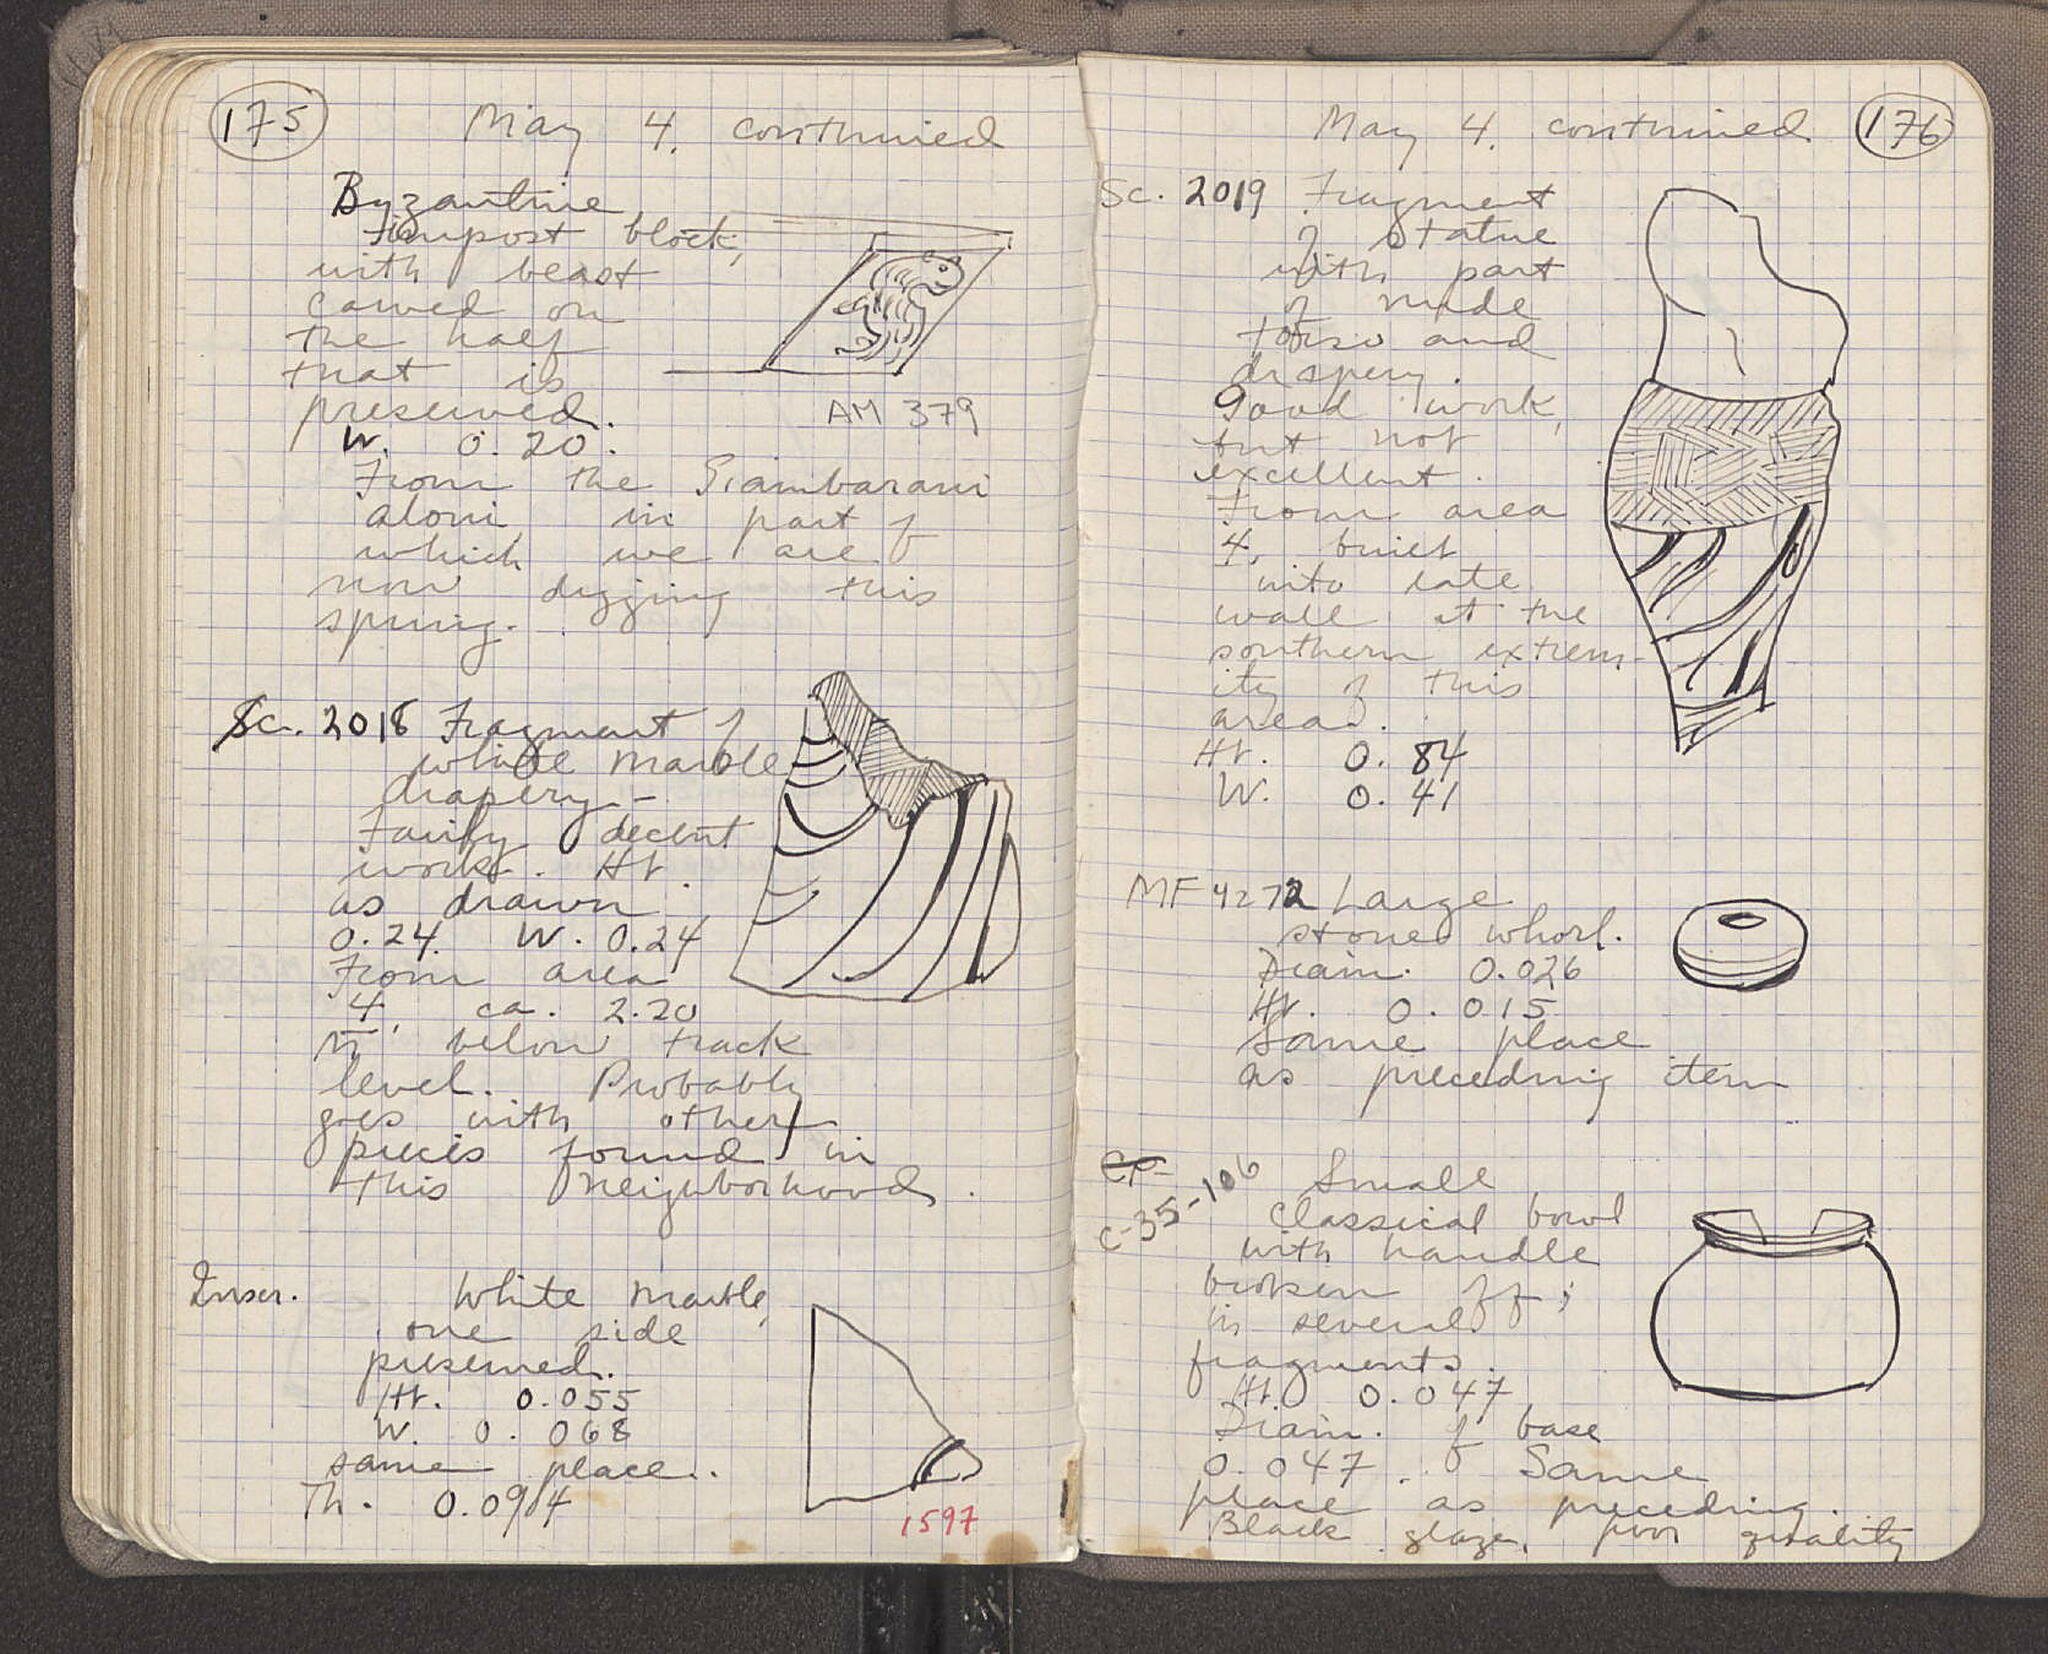 175
May 4. continued
Byzantine
impost block,
with beast
carved on
the half
that is
preserved.
AM 379
W. 0.20.
From the Giambarani
aloni, in part of
which we are
now digging this
spring.
Sc. 2018 Fragment of
white marble
drapery -
Fairly decent
work. Ht.
as drawn
0.24. W. 0.24
From area
4, ca. 2.20
m below track
level. Probably
goes with other
pieces found in
this neighborhood.
Inscr. White marble,
one side
preserved.
Ht. 0.055
W. 0.068
same place.
Th. 0.094
1597
May 4. continued
176
Sc. 2019 Fragment
of statue
with part
of nude
torso and
drapery.
Good work,
but not
excellent.
From area
4, built
into late
wall at the
southern extrem-
ity of this
area.
Ht. 0.84
W. 0.41
MF 4272 Large
stone whorl.
Diam. 0.026
Ht. 0.015
Same place
as preceding item
CP-
C-35-106 Small
classical bowl
with handle
broken off;
in several
fragments.
Ht. 0.047
Diam. of base
0.047. Same
place as preceding.
Black glaze, poor quality